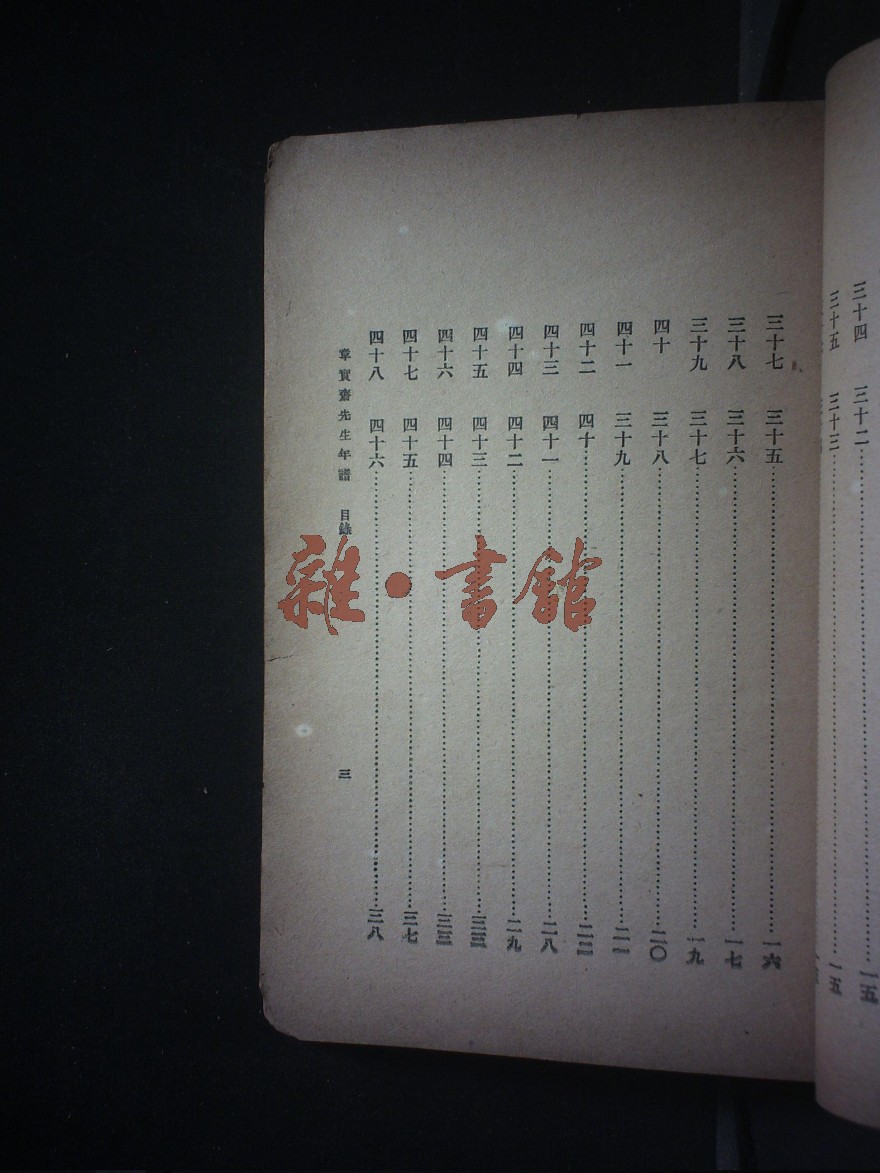 三十四 三十二……一五
三十五 三十三……一五
三十七 三十五……一六
三十八 三十六……一七
三十九 三十七……一九
四十 三十八……二〇
四十一 三十九……二一
四十二 四十……
四十三 四十一……二八
四十四 四十二……二九
四十五 四十三……
四十六 四十四……
四十七 四十五……三七
四十八 四十六……三八
章實齋先生年譜 目錄
三
雜·書館